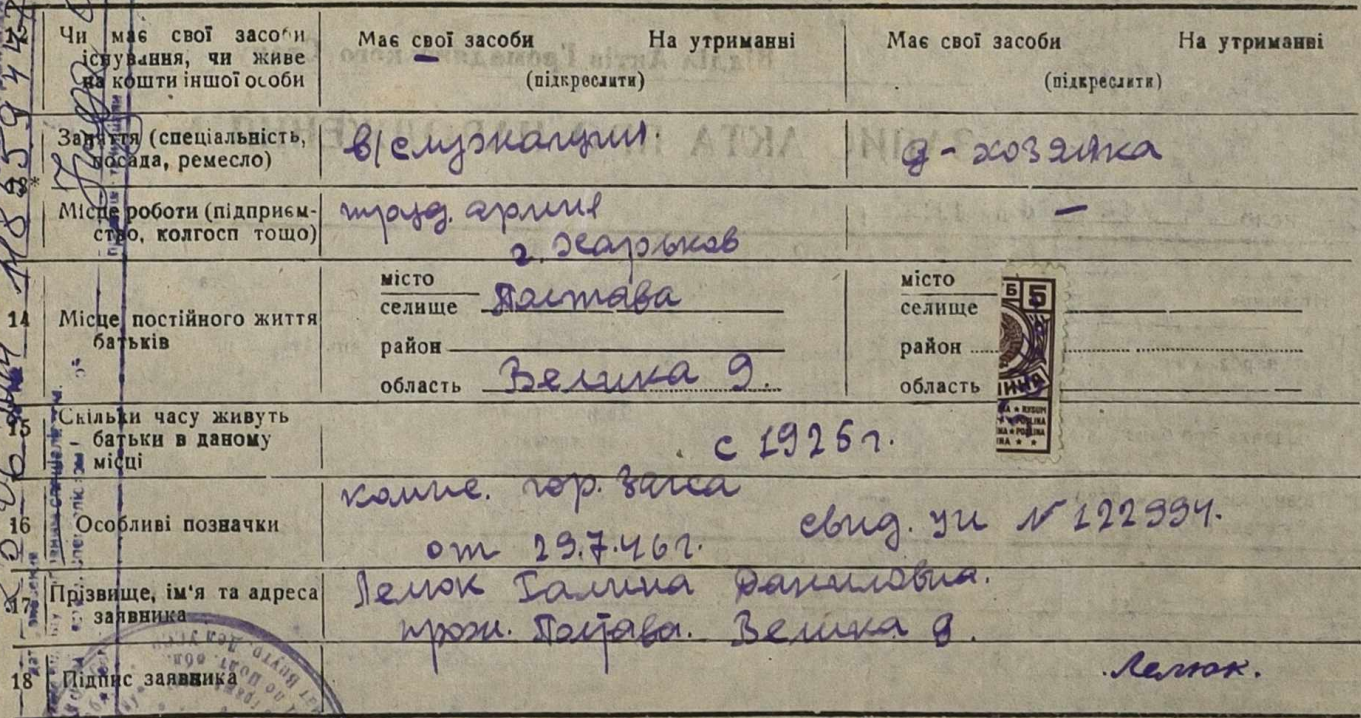 Чи має свої засоби
існування, чи живе
на кошти іншої особи
Має свої засоби На утриманні
(підкреслити)
Має свої засоби На утриманні
(підкреслити)
Заняття (спеціальність,
посада, ремесло)
в/служащий
д-хозяйка
Місце роботи (підприєм-
ство, колгосп тощо)
труд. армия
г. Харьков
—
14
Місце постійного життя
батьків
місто
селище Полтава
район
область Велика 9.
місто
селище
район
область
5
15
Скільки часу живуть
батьки в даному
місці
с 1926 г.
16
Особливі позначки
гор. Загса
от 29.7.46 г.
свид. № 122994.
17
Прізвище, ім'я та адреса
заявника
Лемюк Галина Даниловна.
прож. Полтава. Велика 9.
18
Підпис заявника
Лемюк.